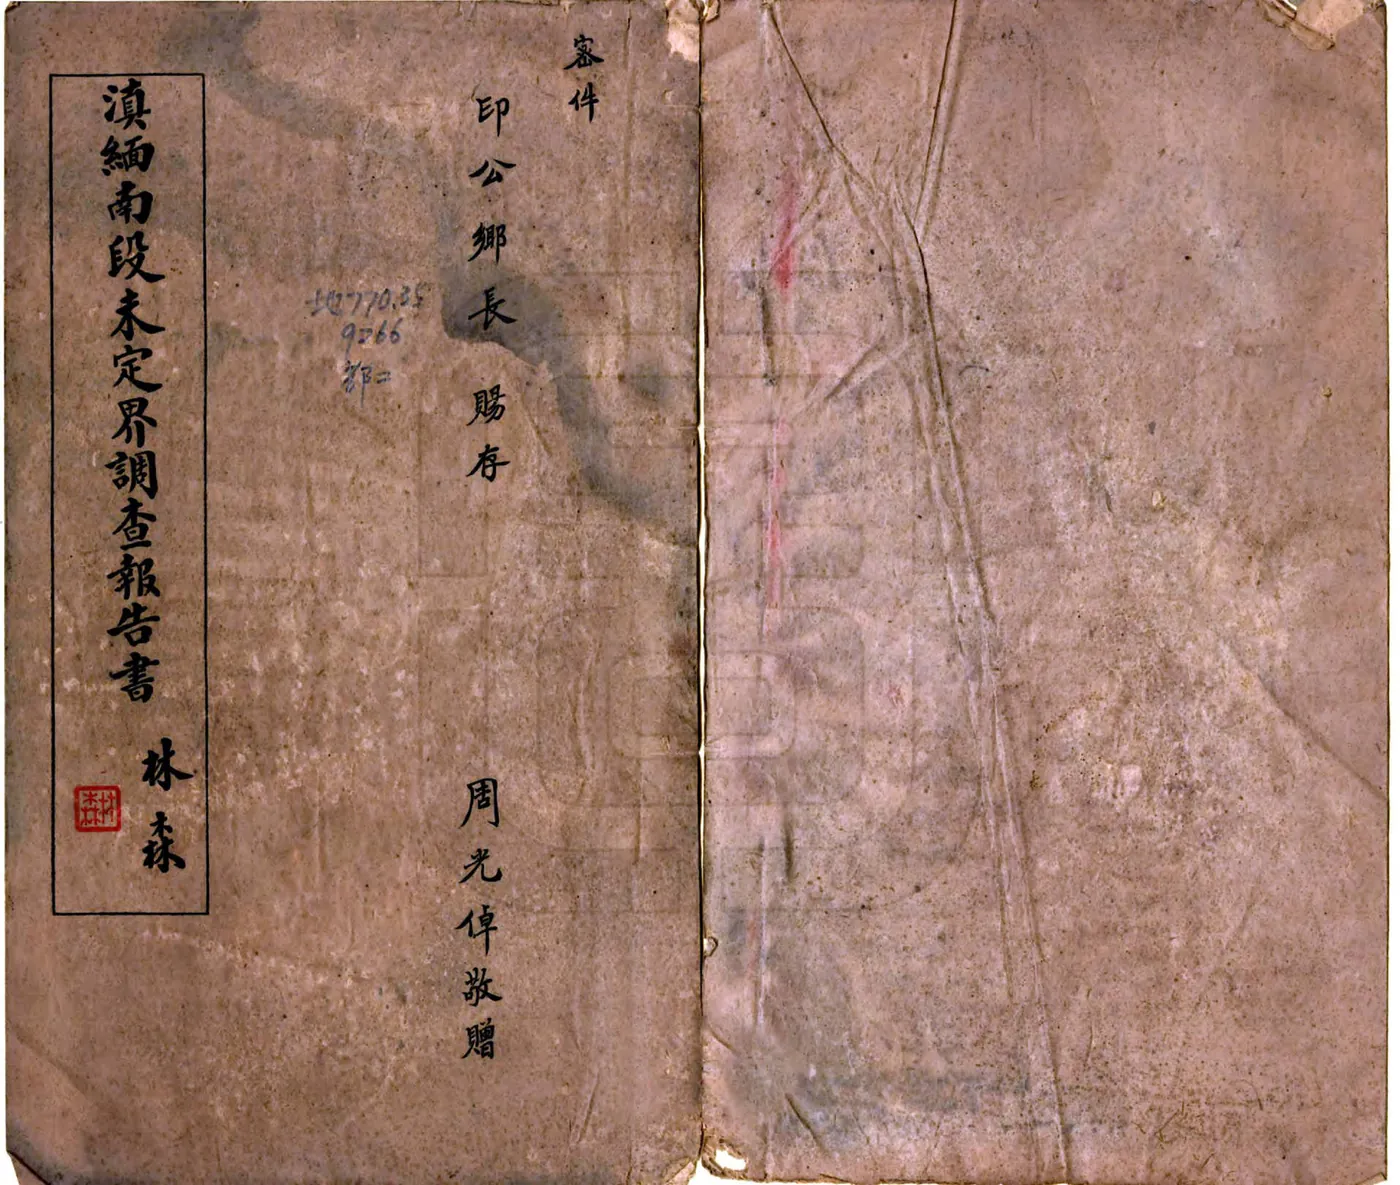 密件
印公鄉長 賜存
周光倬敬贈
地770.35
9266
部二
滇緬南段未定界調查報告書
林森
林森